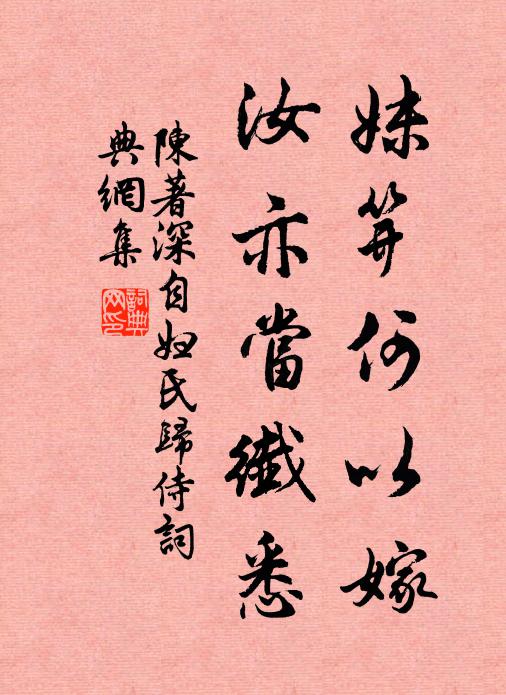 妹笄何以嫁
汝亦當纖悉
陳著深自妞氏歸侍詞
典網集
詞典
网印